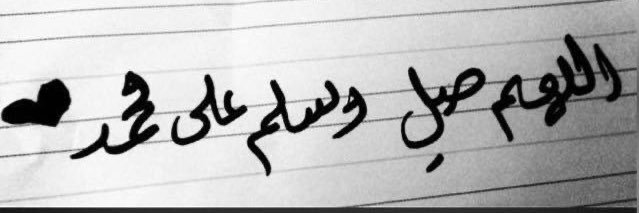 اللهم صلِ وسلم على محمد